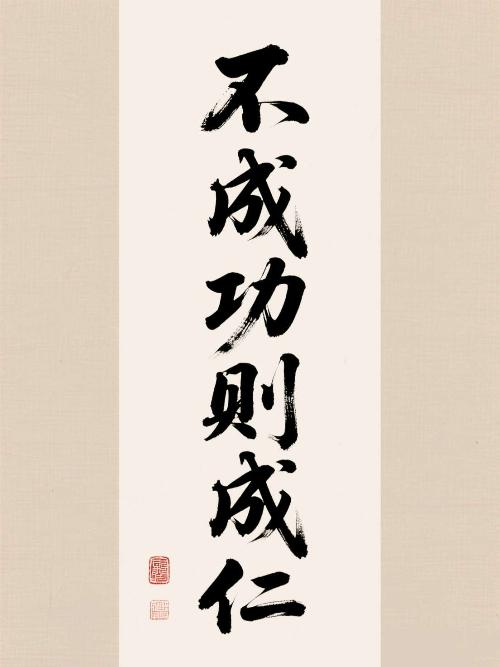 不成功则成仁